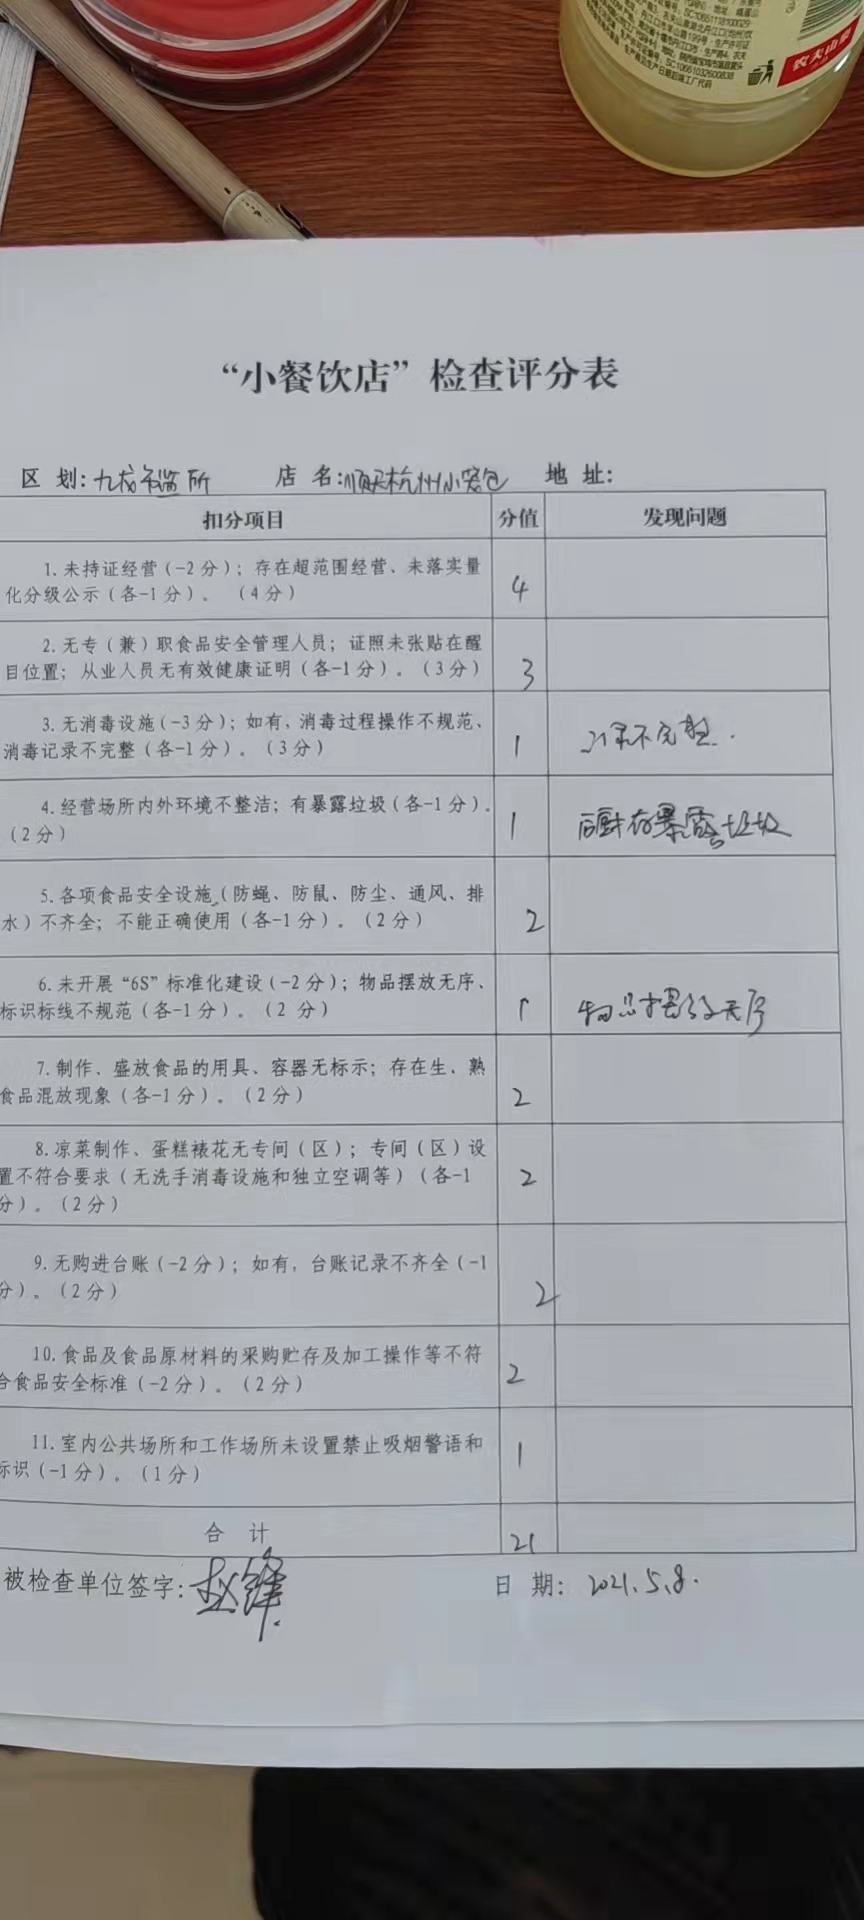 SC10651118100029
SC10661032600838
农夫山泉
“小餐饮店”检查评分表
区 划:九龙市监所 店 名:顺天杭州小笼包 地 址:
扣分项目 分值 发现问题
1.未持证经营(-2分);存在超范围经营、未落实量
化分级公示(各-1分)。(4分)
4
2.无专(兼)职食品安全管理人员;证照未张贴在醒
目位置;从业人员无有效健康证明(各-1分)。(3分)
3
3.无消毒设施(-3分);如有,消毒过程操作不规范、
消毒记录不完整(各-1分)。(3分)
1 记录不完整.
4.经营场所内外环境不整洁;有暴露垃圾(各-1分)。
(2分)
1 后厨有暴露垃圾
5.各项食品安全设施(防蝇、防鼠、防尘、通风、排
水)不齐全;不能正确使用(各-1分)。(2分)
2
6.未开展“6S”标准化建设(-2分);物品摆放无序、
标识标线不规范(各-1分)。(2 分)
1 物品摆放无序
7.制作、盛放食品的用具、容器无标示;存在生、熟
食品混放现象(各-1分)。(2分)
2
8.凉菜制作、蛋糕裱花无专间(区);专间(区)设
置不符合要求(无洗手消毒设施和独立空调等)(各-1
分)。(2分)
2
9.无购进台账(-2分);如有,台账记录不齐全(-1
分)。(2分)
2
10.食品及食品原材料的采购贮存及加工操作等不符
合食品安全标准(-2分)。(2分)
2
11.室内公共场所和工作场所未设置禁止吸烟警语和
标识(-1分)。(1分)
1
合 计 21
被检查单位签字:赵锋 日 期: 2021.5.8.